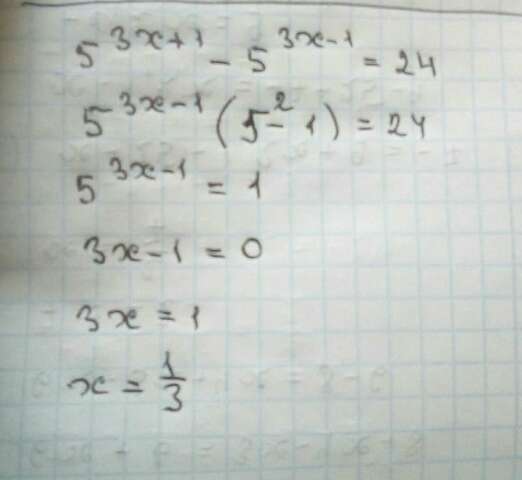 5^{3x+1} - 5^{3x-1} = 24
5^{3x-1} (5^2 - 1) = 24
5^{3x-1} = 1
3x - 1 = 0
3x = 1
x = \frac{1}{3}